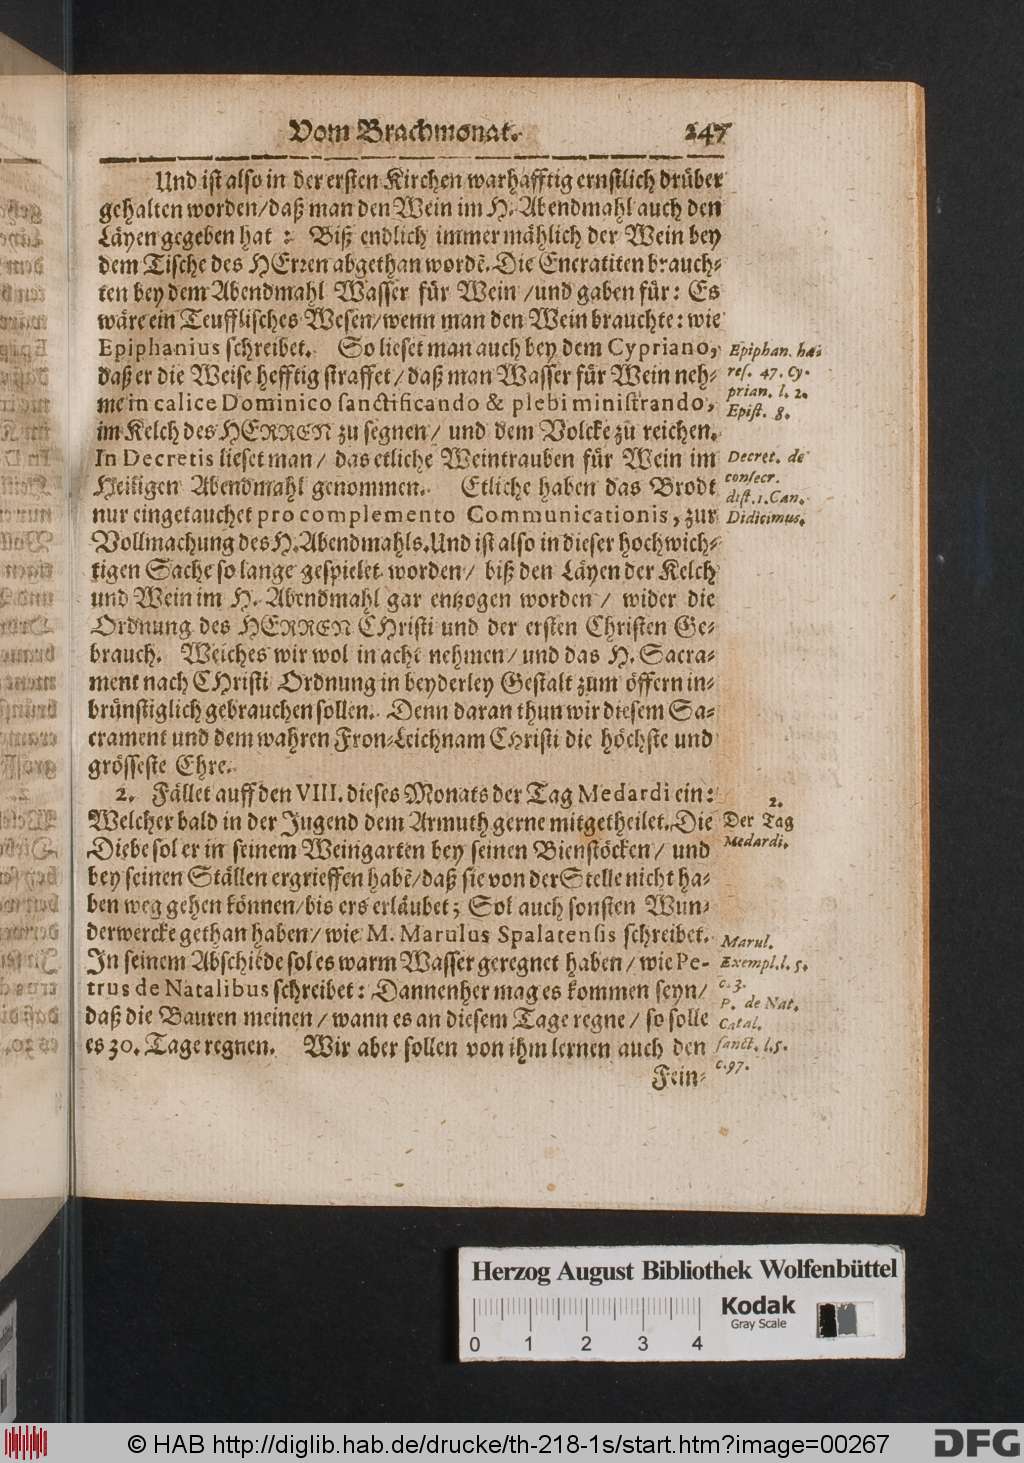 Vom Brachmonat. 247
Und ist also in der ersten Kirchen warhafftig ernstlich drüber
gehalten worden/daß man den Wein im H. Abendmahl auch den
Läyen gegeben hat : Biß endlich immermählich der Wein bey
dem Tische des HErren abgethan wordẽ. Die Encratiten brauch-
ten bey dem Abendmahl Wasser für Wein /und gaben für: Es
wäre ein Teufflisches Wesen/wenn man den Wein brauchte: wie
Epiphanius schreibet. So lieset man auch bey dem Cypriano,
daß er die Weise hefftig straffet/daß man Wasser für Wein neh-
me in calice Dominico sanctificando & plebi ministrando,
im Kelch des HERREN zu segnen/ und dem Volcke zu reichen.
In Decretis lieset man/ das etliche Weintrauben für Wein im
Heiligen Abendmahl genommen. Etliche haben das Brodt
nur eingetauchet pro complemento Communicationis, zur
Vollmachung des H. Abendmahls. Und ist also in dieser hochwich-
tigen Sache so lange gespielet worden/ biß den Läyen der Kelch
und Wein im H. Abendmahl gar entzogen worden/ wider die
Ordnung des HERREN CHristi und der ersten Christen Ge-
brauch. Welches wir wol in acht nehmen/und das H. Sacra-
ment nach CHristi Ordnung in beyderley Gestalt zum öffern in-
brünstiglich gebrauchen sollen. Denn daran thun wir diesem Sa-
crament und dem wahren Fron-Leichnam CHristi die höchste und
grösseste Ehre.
2. Fället auff den VIII. dieses Monats der Tag Medardi ein:
Welcher bald in der Jugend dem Armuth gerne mitgetheilet. Die
Diebe sol er in seinem Weingarten bey seinen Bienstöcken/ und
bey seinen Ställen ergrieffen habẽ/daß sie von der Stelle nicht ha-
ben weg gehen können/bis ers erläubet; Sol auch sonsten Wun-
derwercke gethan haben/ wie M. Marulus Spalatensis schreibet.
In seinem Abschiede sol es warm Wasser geregnet haben/ wie Pe-
trus de Natalibus schreibet: Dannenher mag es kommen seyn/
daß die Bauren meinen/wann es an diesem Tage regne/ so solle
es 30. Tage regnen. Wir aber sollen von ihm lernen auch den
Fein-
Epiphan. hæ-
res. 47. Cy-
prian. l. 2.
Epist. 8.
Decret. de
consecr.
dist. 1. Can.
Didicimus.
2.
Der Tag
Medardi.
Marul.
Exempl. l. 5.
c. 3.
P. de Nat.
Catal.
sanct. l. 5.
c. 97.
Herzog August Bibliothek Wolfenbüttel
Kodak
Gray Scale
0 1 2 3 4
© HAB http://diglib.hab.de/drucke/th-218-1s/start.htm?image=00267
DFG